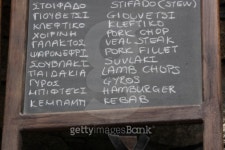 ΣΤΟΙΦΑΔΟ STIFADO (STEW)
ΓΙΟΥΒΕΤΣΙ GIOUVETSI
ΚΛΕΦΤΙΚΟ KLEFTIKO
ΧΟΙΡΙΝΗ PORK CHOP
ΓΑΛΑΚΤΟΣ VEAL STEAK
ΨΑΡΟΝΕΦΡΙ PORK FILLET
ΣΟΥΒΛΑΚΙ SUVLAKI
ΠΑΙΔΑΚΙΑ LAMB CHOPS
ΓΥΡΟΣ GYROS
ΜΠΙΦΤΕΚΙ HAMBURGER
ΚΕΜΠΑΜΠ KEBAB
gettyimagesBank